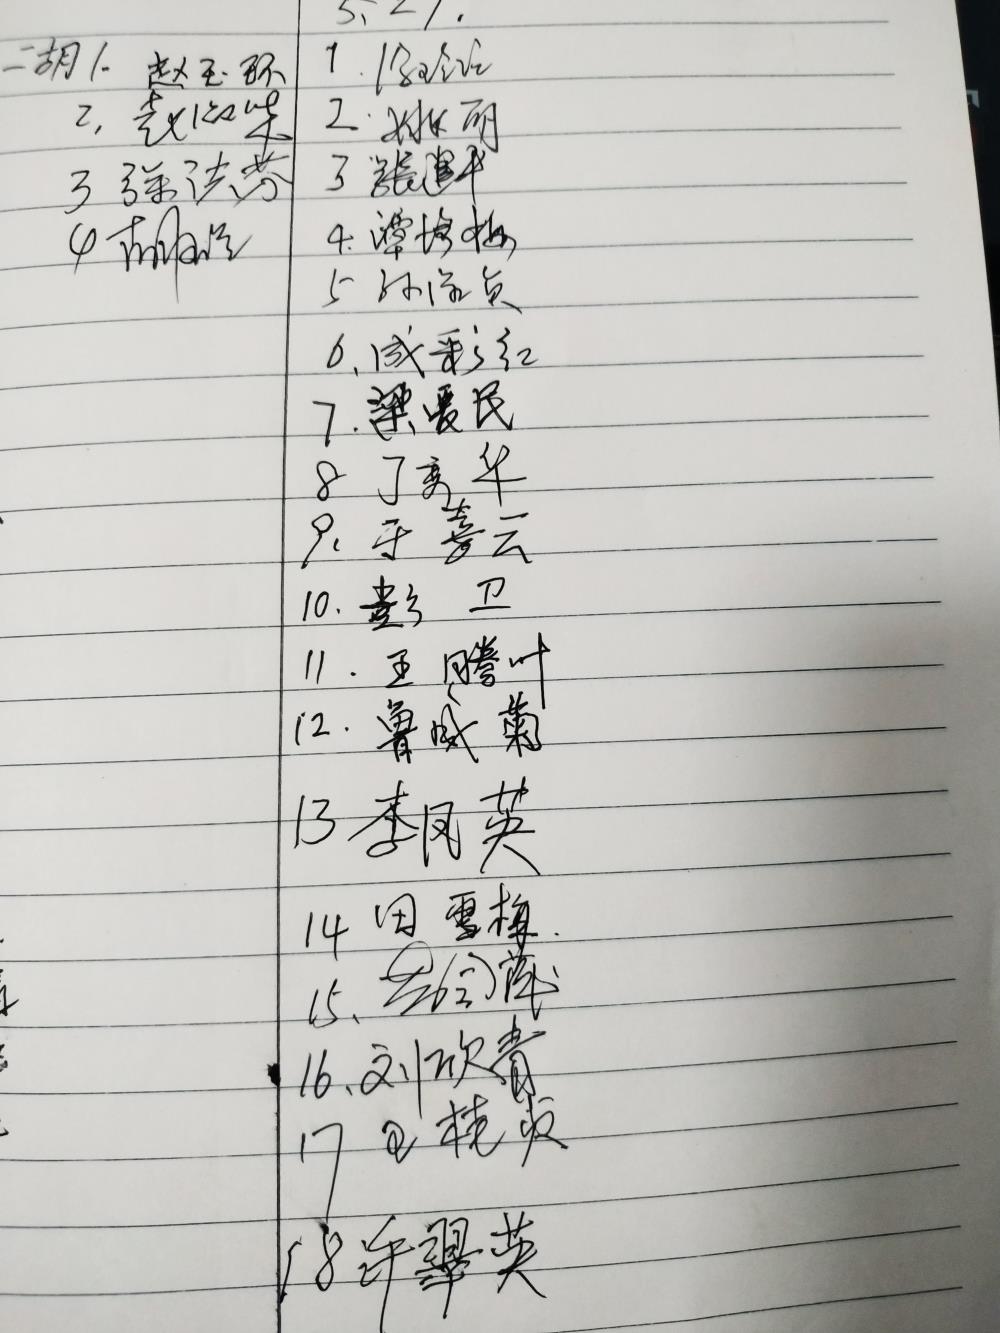 5.27.
二胡 1. 赵玉环
2. 赵
3 孙
4 胡
1.
2. 姚丽
3 张建华
4. 谭培梅
5 孙淑贞
6. 成彩红
7. 梁爱民
8 丁秀华
9. 于喜云
10. 彭卫
11. 王腾叶
12. 鲁咸菊
13 李凤英
14 田雪梅.
15.
16. 刘欣青
17 王桂
18 许翠英